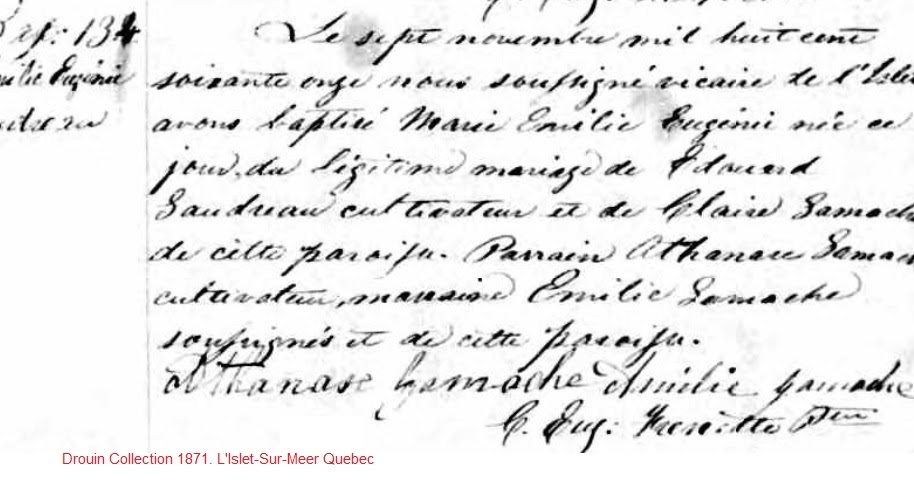 Bapt: 134
Emilie Eugénie
Gaudreau
Le sept novembre mil huit cent
soixante onze nous soussigné vicaire de l'Islet
avons baptisé Marie Emilie Eugénie née ce
jour, du légitime mariage de Edouard
Gaudreau cultivateur et de Claire Gamache
de cette paroisse. Parrain Athanase Gamache
cultivateur, marraine Emilie Gamache
soussignés et de cette paroisse.
Athanase Gamache Emilie Gamache
C. Eug: Frenette Ptre
Drouin Collection 1871. L'Islet-Sur-Meer Quebec